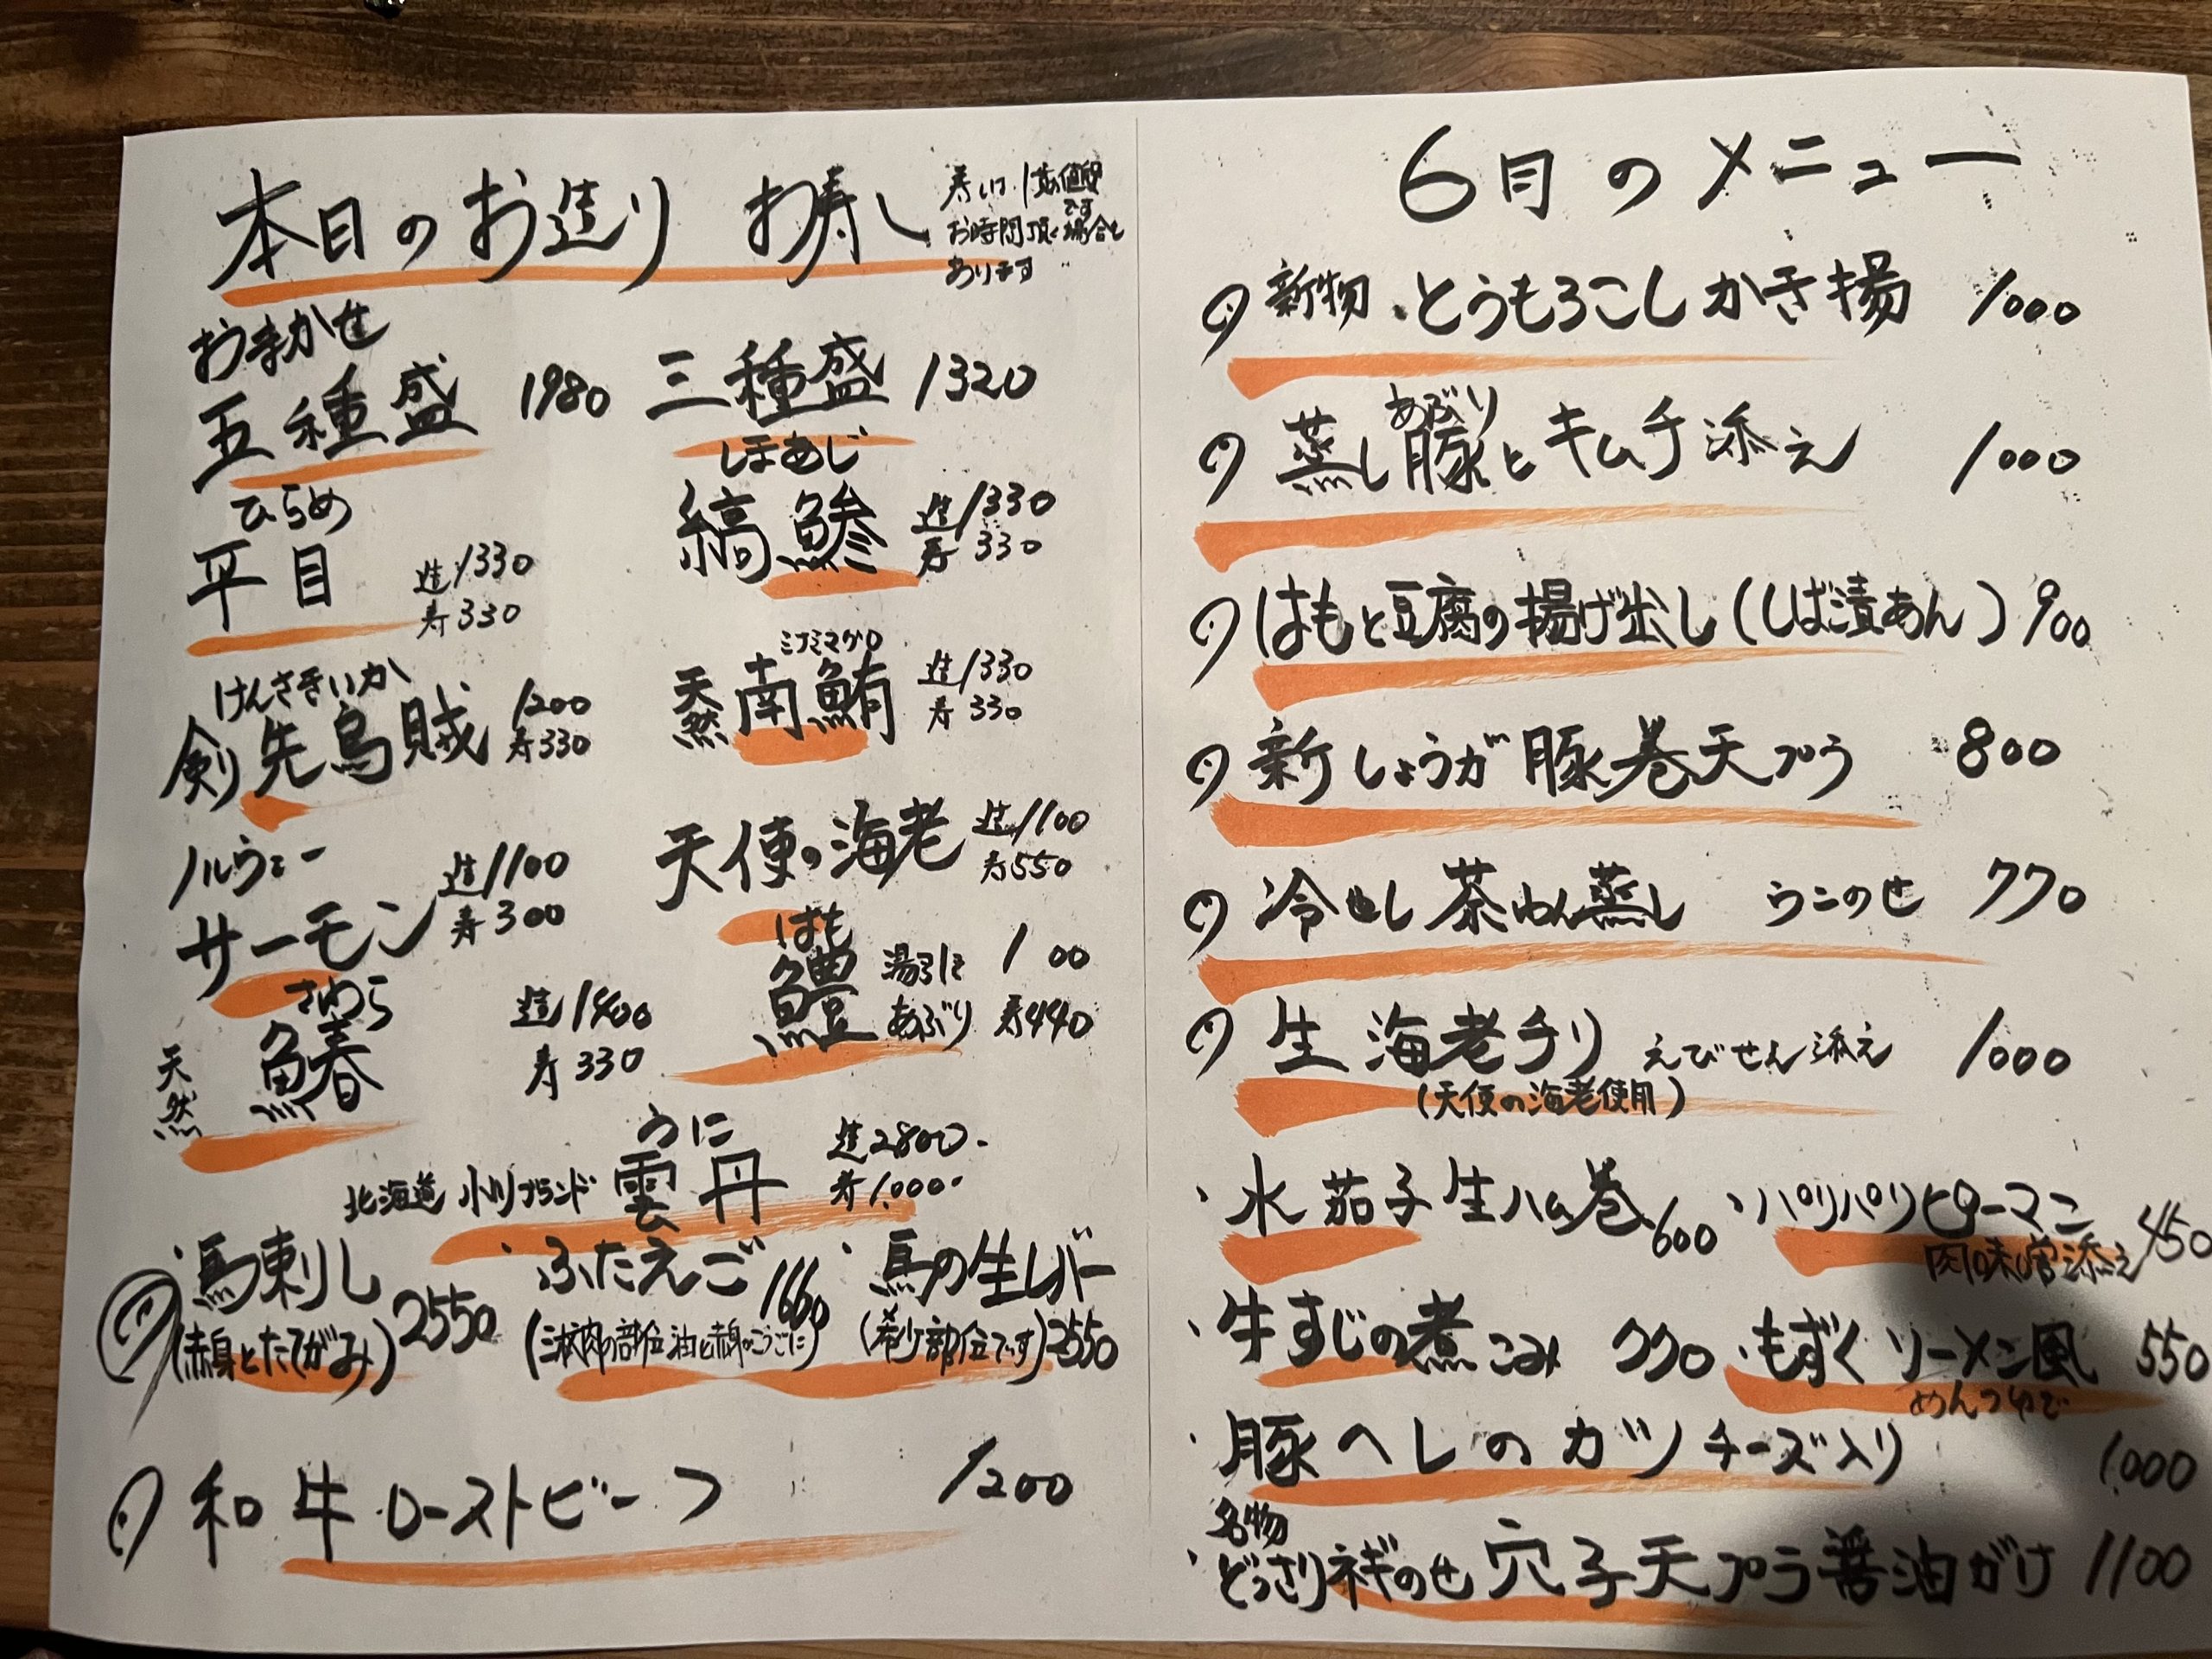 本日のお造り お寿し
寿しは1貫の値段
です
お時間頂く場合も
あります
おまかせ
五種盛 1980 三種盛 1320
ひらめ
平目 造1330
寿330
しまあじ
縞鯵 造1330
寿330
けんさきいか
剣先烏賊 1200
寿330
ミナミマグロ
天然 南鮪 造1330
寿330
ノルウェー
サーモン 造1100
寿300
天使の海老 造1100
寿550
さわら
天然 鰆 造1400
寿330
はも
鱧 湯引き 1 00
あぶり 寿440
うに
北海道 小川ブランド 雲丹 造2800-
寿1,000-
・馬刺し 2550
(赤身とたてがみ)
・ふたえご 1660
(三枚肉の部位 油と赤身の)
・馬の生レバー
(希少部位です) 2550
和牛ローストビーフ 1200
6月のメニュー
新物・とうもろこしかき揚 1000
あぶり
蒸し豚とキムチ添え 1000
はもと豆腐の揚げ出し(しば漬あん) 900
新しょうが豚巻天プラ 800
冷やし茶わん蒸し ウニのせ 770
生海老チリ えびせん添え 1000
(天使の海老使用)
・水茄子生ハム巻 600
・パリパリピーマン 450
肉味噌添え
・牛すじの煮こみ 770
・もずくソーメン風 550
めんつゆで
・豚ヘレのカツ チーズ入り 1,000
名物
・どっさりネギのせ穴子天プラ醤油がけ 1100